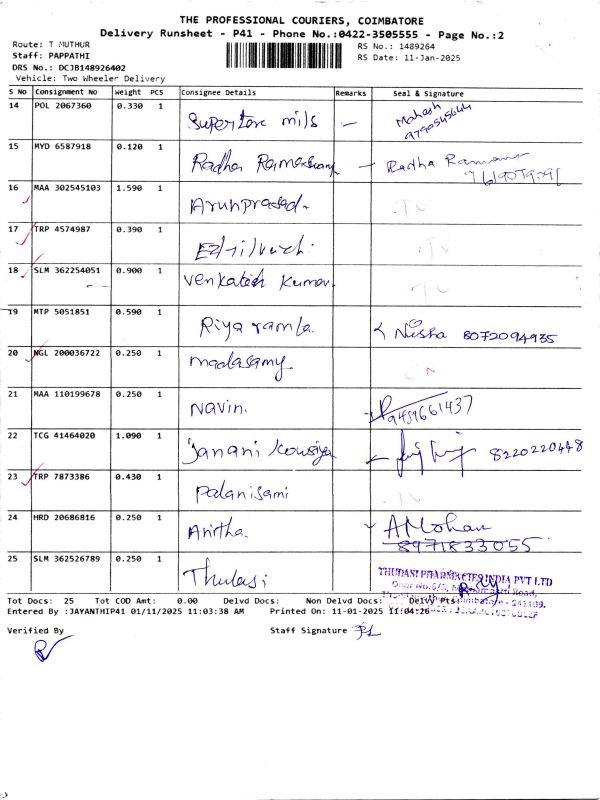 THE PROFESSIONAL COURIERS, COIMBATORE
Delivery Runsheet - P41 - Phone No.:0422-3505555 - Page No.:2
Route: T MUTHUR RS No.: 1489264
Staff: PAPPATHI RS Date: 11-Jan-2025
DRS No.: DCJB148926402
Vehicle: Two Wheeler Delivery
S No Consignment No Weight PCS Consignee Details Remarks Seal & Signature
14 POL 2067360 0.330 1 mils Mahesh
9790545644
15 MYD 6587918 0.120 1 Radha - Radha
16 MAA 302545103 1.590 1 Arunprasad.
17 TRP 4574987 0.390 1
18 SLM 362254051 0.900 1 Venkatesh Kumar.
19 MTP 5051851 0.590 1 Riya ramla. Nisha 8072094935
20 NGL 200036722 0.250 1 madasamy
21 MAA 110199678 0.250 1 Navin. 9489661437
22 TCG 41464020 1.090 1 Janani Kowsiya 8220220448
23 TRP 7873386 0.430 1 Palanisami
24 HRD 20686816 0.250 1 Anitha. A Mohan
8971833055
25 SLM 362526789 0.250 1 Thulasi
THULASI PHARMACIES INDIA PVT LTD
Tot Docs: 25 Tot COD Amt: 0.00 Delvd Docs: Non Delvd Docs: Delvy Pts:
Entered By :JAYANTHIP41 01/11/2025 11:03:38 AM Printed On: 11-01-2025 11:04:26
Verified By Staff Signature